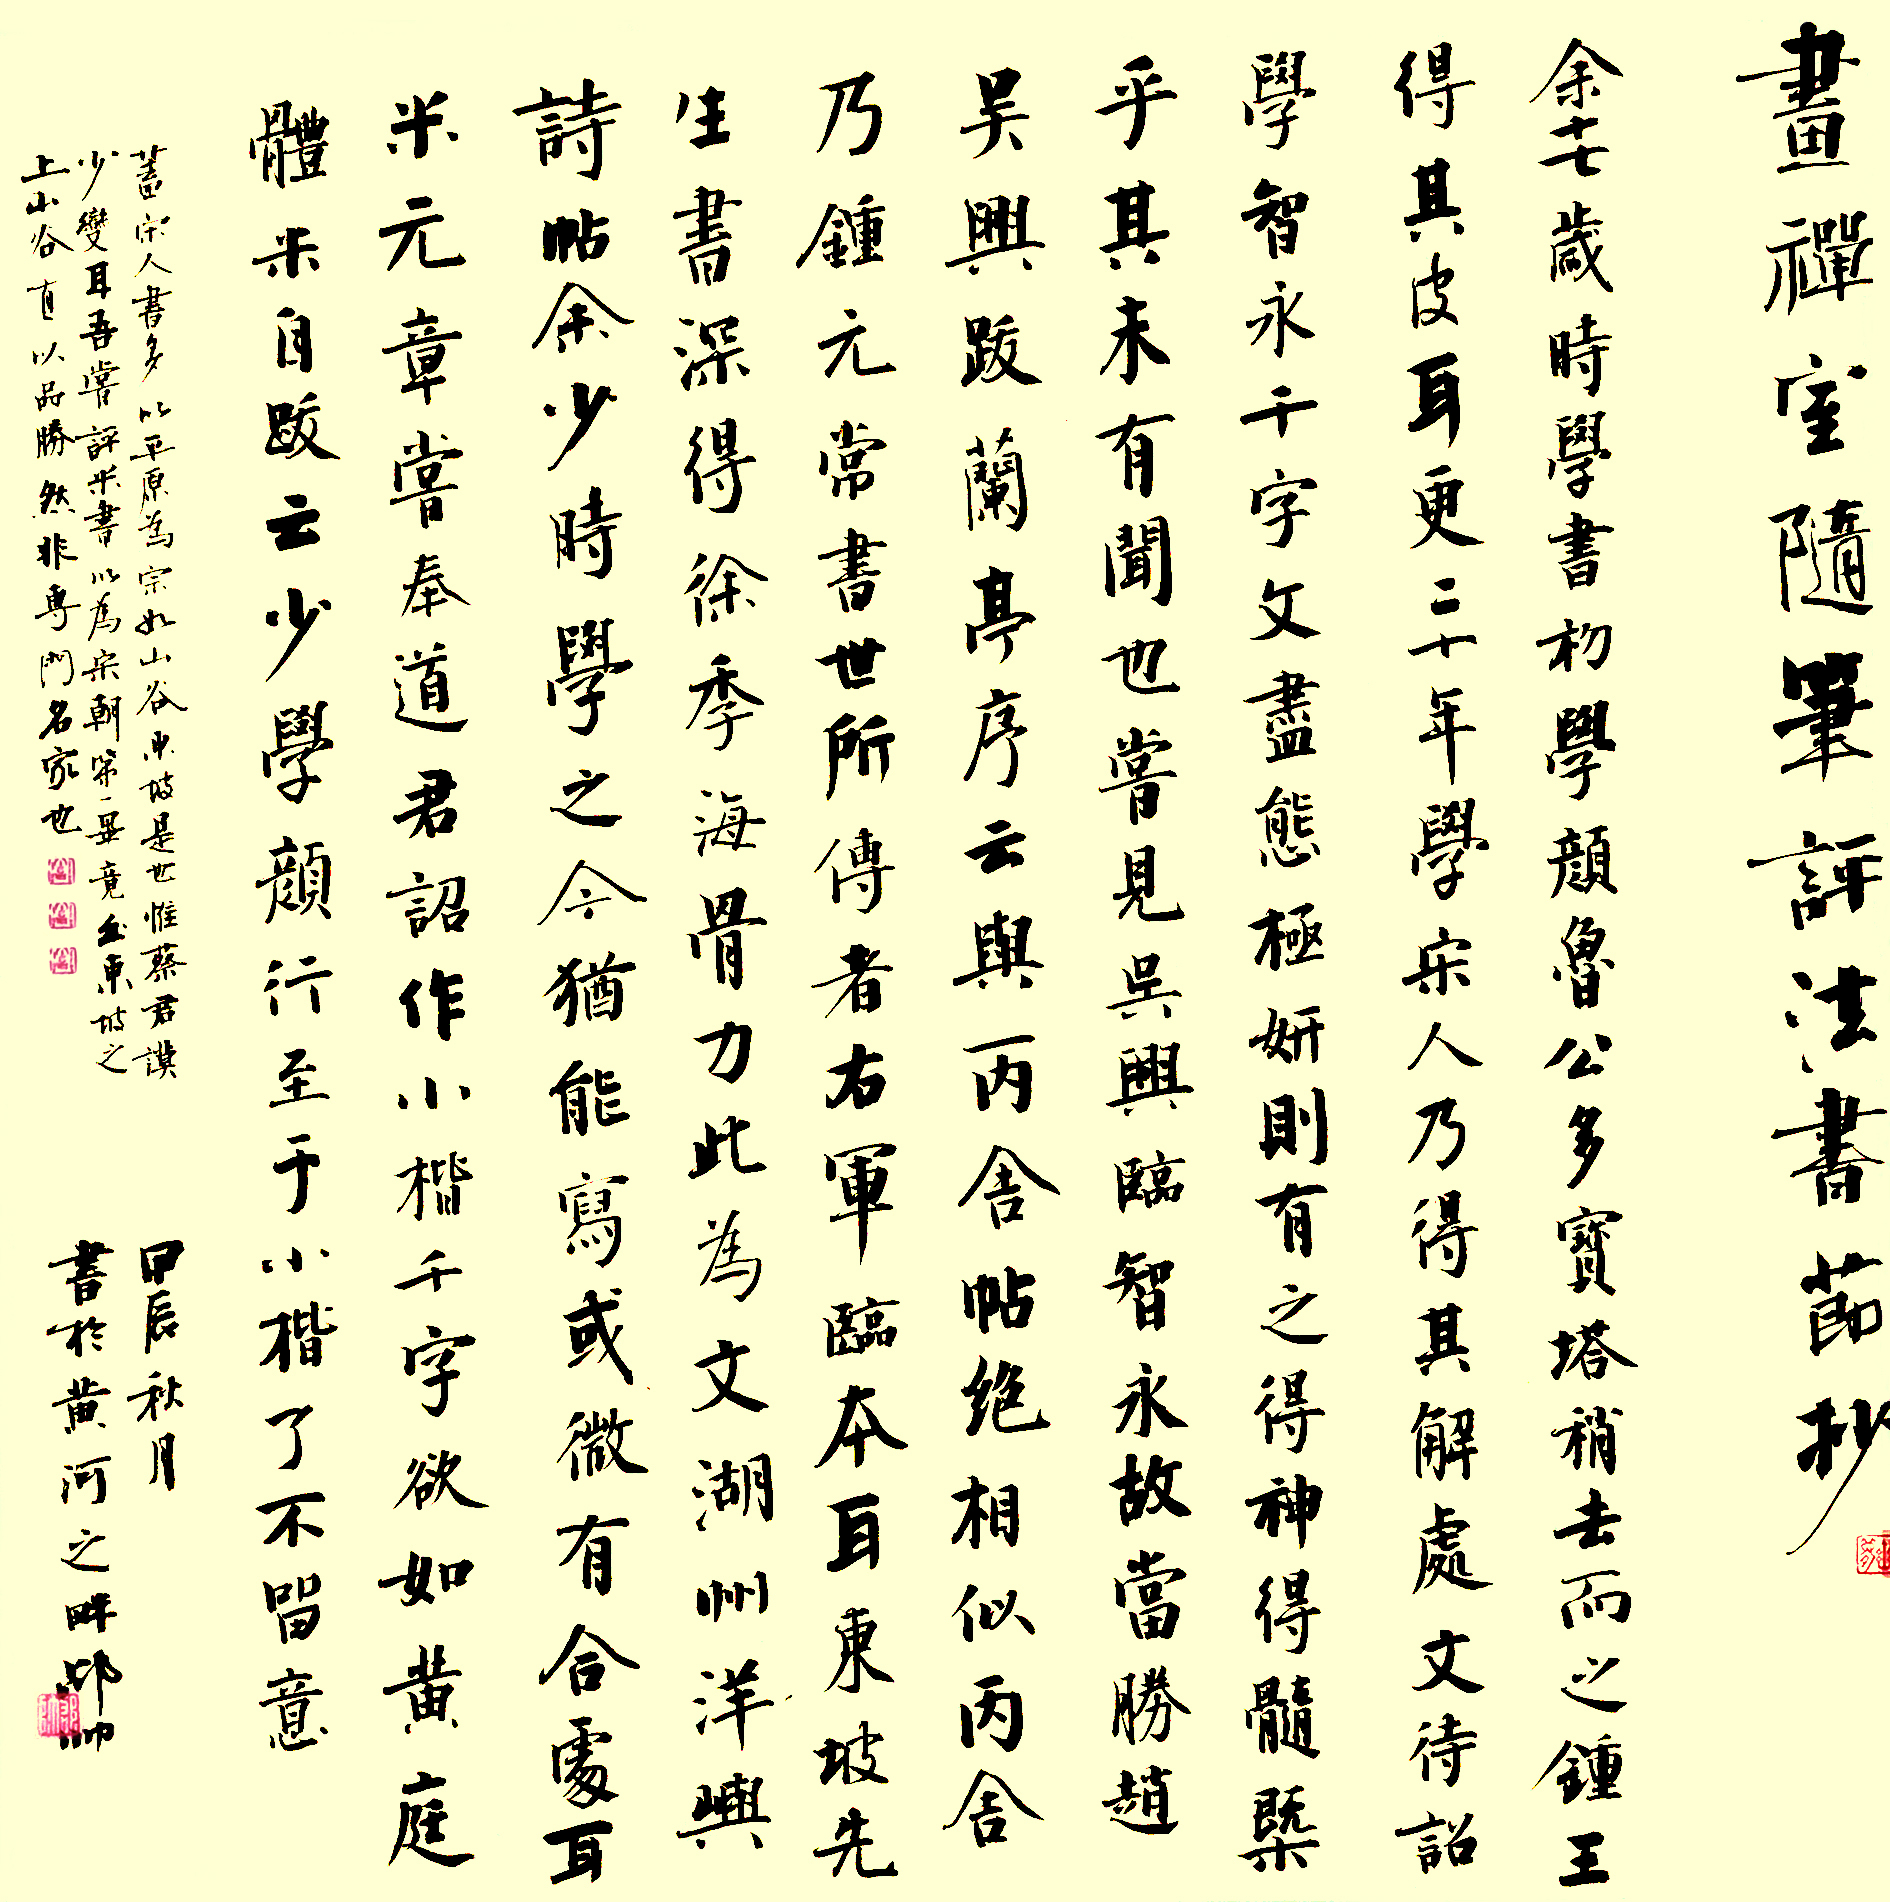 畫禪室隨筆評法書節抄
余十七歲時學書初學顏魯公多寶塔稍去而之鍾王
得其皮耳更二十年學宋人乃得其解處文待詔
學智永千字文盡態極妍則有之得神得髓槩
乎其未有聞也嘗見吳興臨智永故當勝趙
吴興跋蘭亭序云與丙舍帖绝相似丙舍
乃鍾元常書世所傳者右軍臨本耳東坡先
生書深得徐季海骨力此為文湖州洋輿
詩帖余少時學之今猶能寫或微有合處耳
米元章嘗奉道君詔作小楷千字欲如黃庭
體米自跋云少學顏行至于小楷了不留意
蓋宋人書多以平原為宗如山谷東坡是也惟蔡君謨
少變耳吾嘗評米書以為宋朝第一畢竟出東坡之
上山谷直以品勝然非專門名家也
甲辰秋月
書於黄河之畔